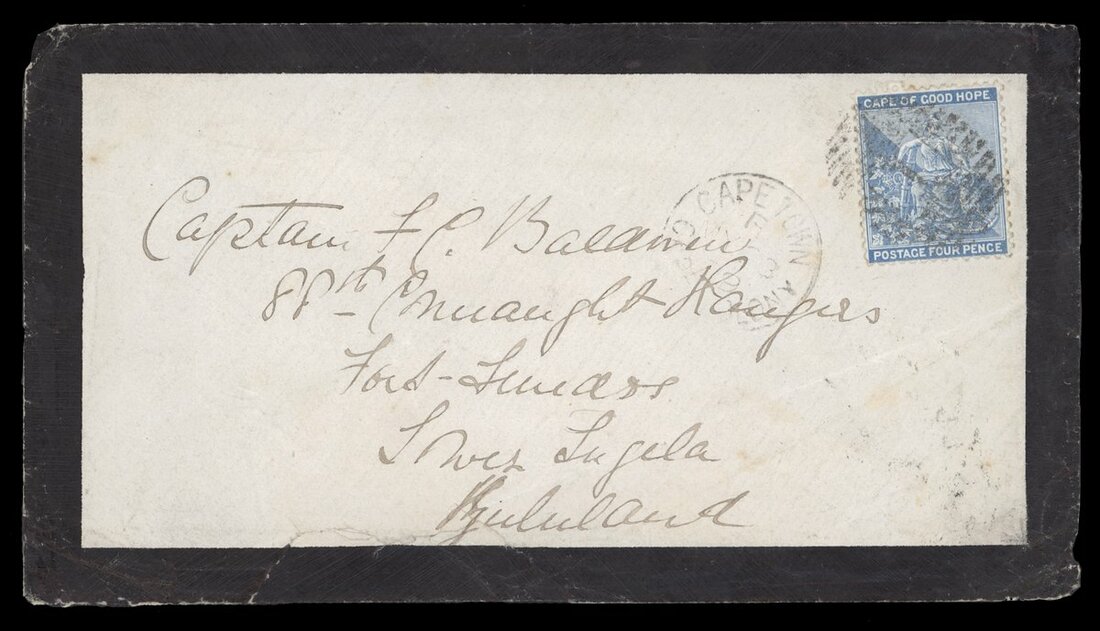 CAPE OF GOOD HOPE
POSTAGE FOUR PENCE
CAPE TOWN
Captain F C. Baldwin
88th Connaught Rangers
Fort
Lower Tugela
Zululand